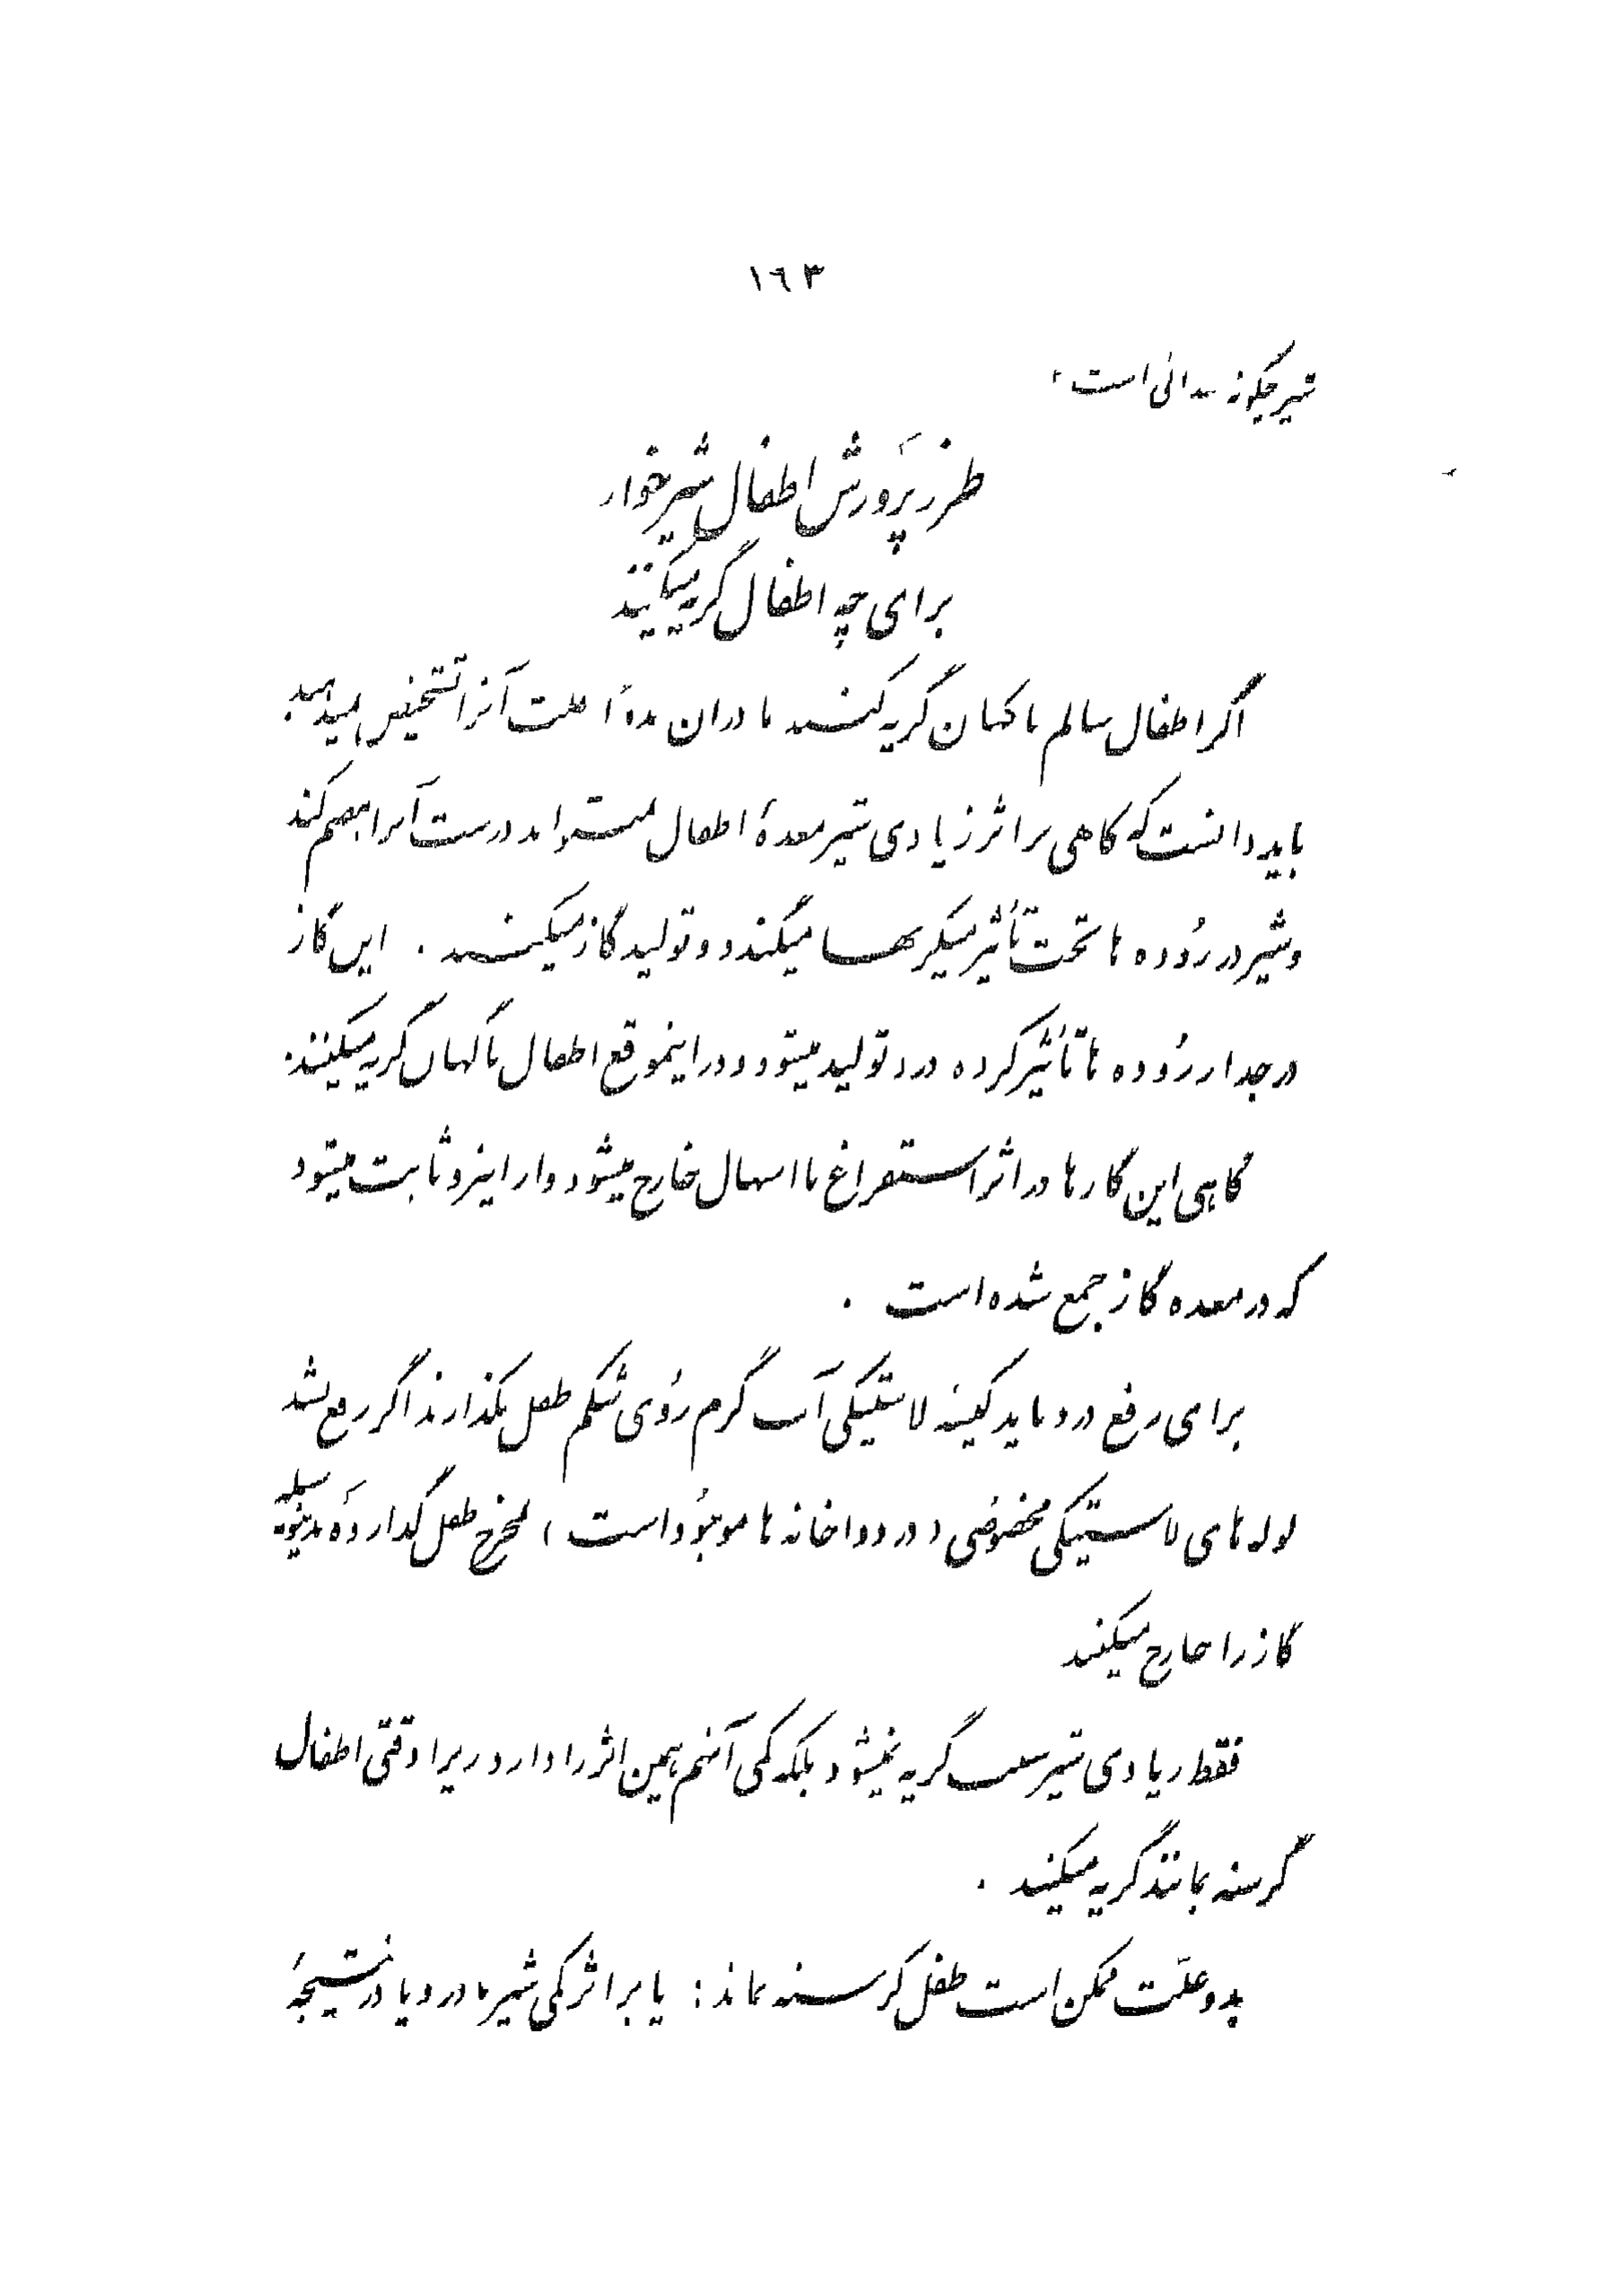 ١٦٣
شیر چگونه است
طرز پَرورش اطفال شیرخوار
برای چه اطفال گریه میکنند
اگر اطفال سالم ناگهان گریه کنند مادران علت آنرا تشخیص میدهند
باید دانست که گاهی بر اثر زیادی شیر معدهٔ اطفال نمیتواند درست آنرا هضم کند
و شیر در رُوده ها تحت تأثیر میکربها میگندد و تولید گاز میکنند . این گاز
در جدار رُوده ها تأثیر کرده درد تولید میشود و در اینموقع اطفال ناگهان گریه میکنند .
گاهی این گازها در اثر استفراغ یا اسهال خارج میشود و از اینرو ثابت میشود
که در معده گاز جمع شده است .
برای رفع درد باید کیسه لاستیکی آب گرم رُوی شکم طفل بگذارند اگر رفع نشد
لوله های لاستیکی مخصُوصی ( در دواخانه ها موجُود است ) بمخرج طفل گذارده بدینوسیله
گاز را خارج میکنند
فقط زیادی شیر سبب گریه نمیشود بلکه کمی آنهم همین اثر را دارد زیرا وقتی اطفال
گرسنه بمانند گریه میکنند .
بدو علّت ممکن است طفل گرسنه بماند : یا بر اثر کمی شیر مادر و یا در نتیجهٔ